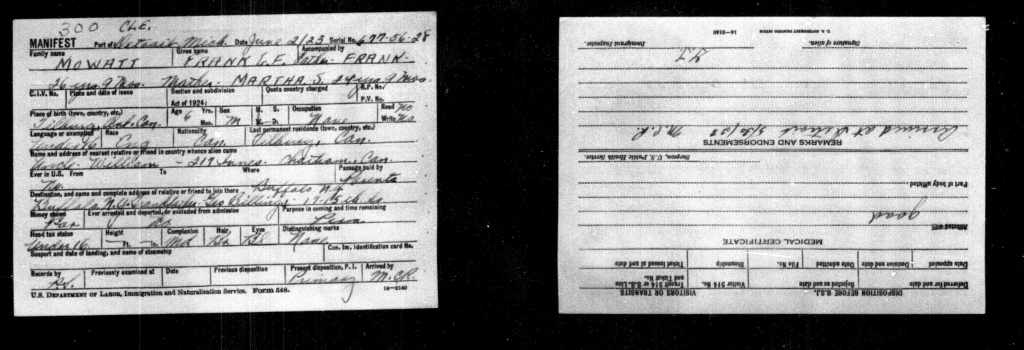 300 CLE.
MANIFEST Port of Detroit Mich. Date June 2/23 Serial No. 677-56-28
Family name Given name Accompanied by
MOWATT FRANK L. F. Father FRANK-
26 yrs 9 Mos. Mother MARTHA. S. 24 yrs 9 Mos.
C.I.V. No. Place and date of issue Section and subdivision Quota country charged R.P. No.
Act of 1924: P.V. No.
Place of birth (town, country, etc.) Age Yrs. Sex M. S. Occupation Read No
Tilbury, Ont. Can. 6 Mos. M W. D. None Write No
Language or exempted Race Nationality Last permanent residence (town, country, etc.)
Under 16 Eng Can. Tilbury, Can.
Name and address of nearest relative or friend in country whence alien came
Uncle William - 217 Chatham, Can.
Ever in U.S. From To Where Passage paid by
No. Parents
Destination, and name and complete address of relative or friend to join there Buffalo N.Y.
Buffalo N.Y. Grandfather Geo Billings
Money shown Ever arrested and deported, or excluded from admission Purpose in coming and time remaining
No
Head tax status Height Complexion Hair Eyes Distinguishing marks
Under 16 Ft. In. Med Br Bl None
Seaport and date of landing, and name of steamship Con. Im. Identification card No.
Records by Previously examined at Date Previous disposition Present disposition, P.I. Arrived by
Primary M.C.R.
U.S. DEPARTMENT OF LABOR, Immigration and Naturalization Service. Form 548. 14-2140
DISPOSITION BEFORE B.S.I. VISITORS OR TRANSITS
Deferred for and date Rejected as and date Visitor 514 No. Transit 514 or S.S. Line and Ticket No.
Date appealed Decision and date Date admitted File No. Hospitality Ticket issued at and date
MEDICAL CERTIFICATE
Affected with
good
Part of body affected
Surgeon, U.S. Public Health Service.
REMARKS AND ENDORSEMENTS
Arrived at Detroit M.C.R.
Signature of alien. Immigrant Inspector.
U.S. GOVERNMENT PRINTING OFFICE 14-2140